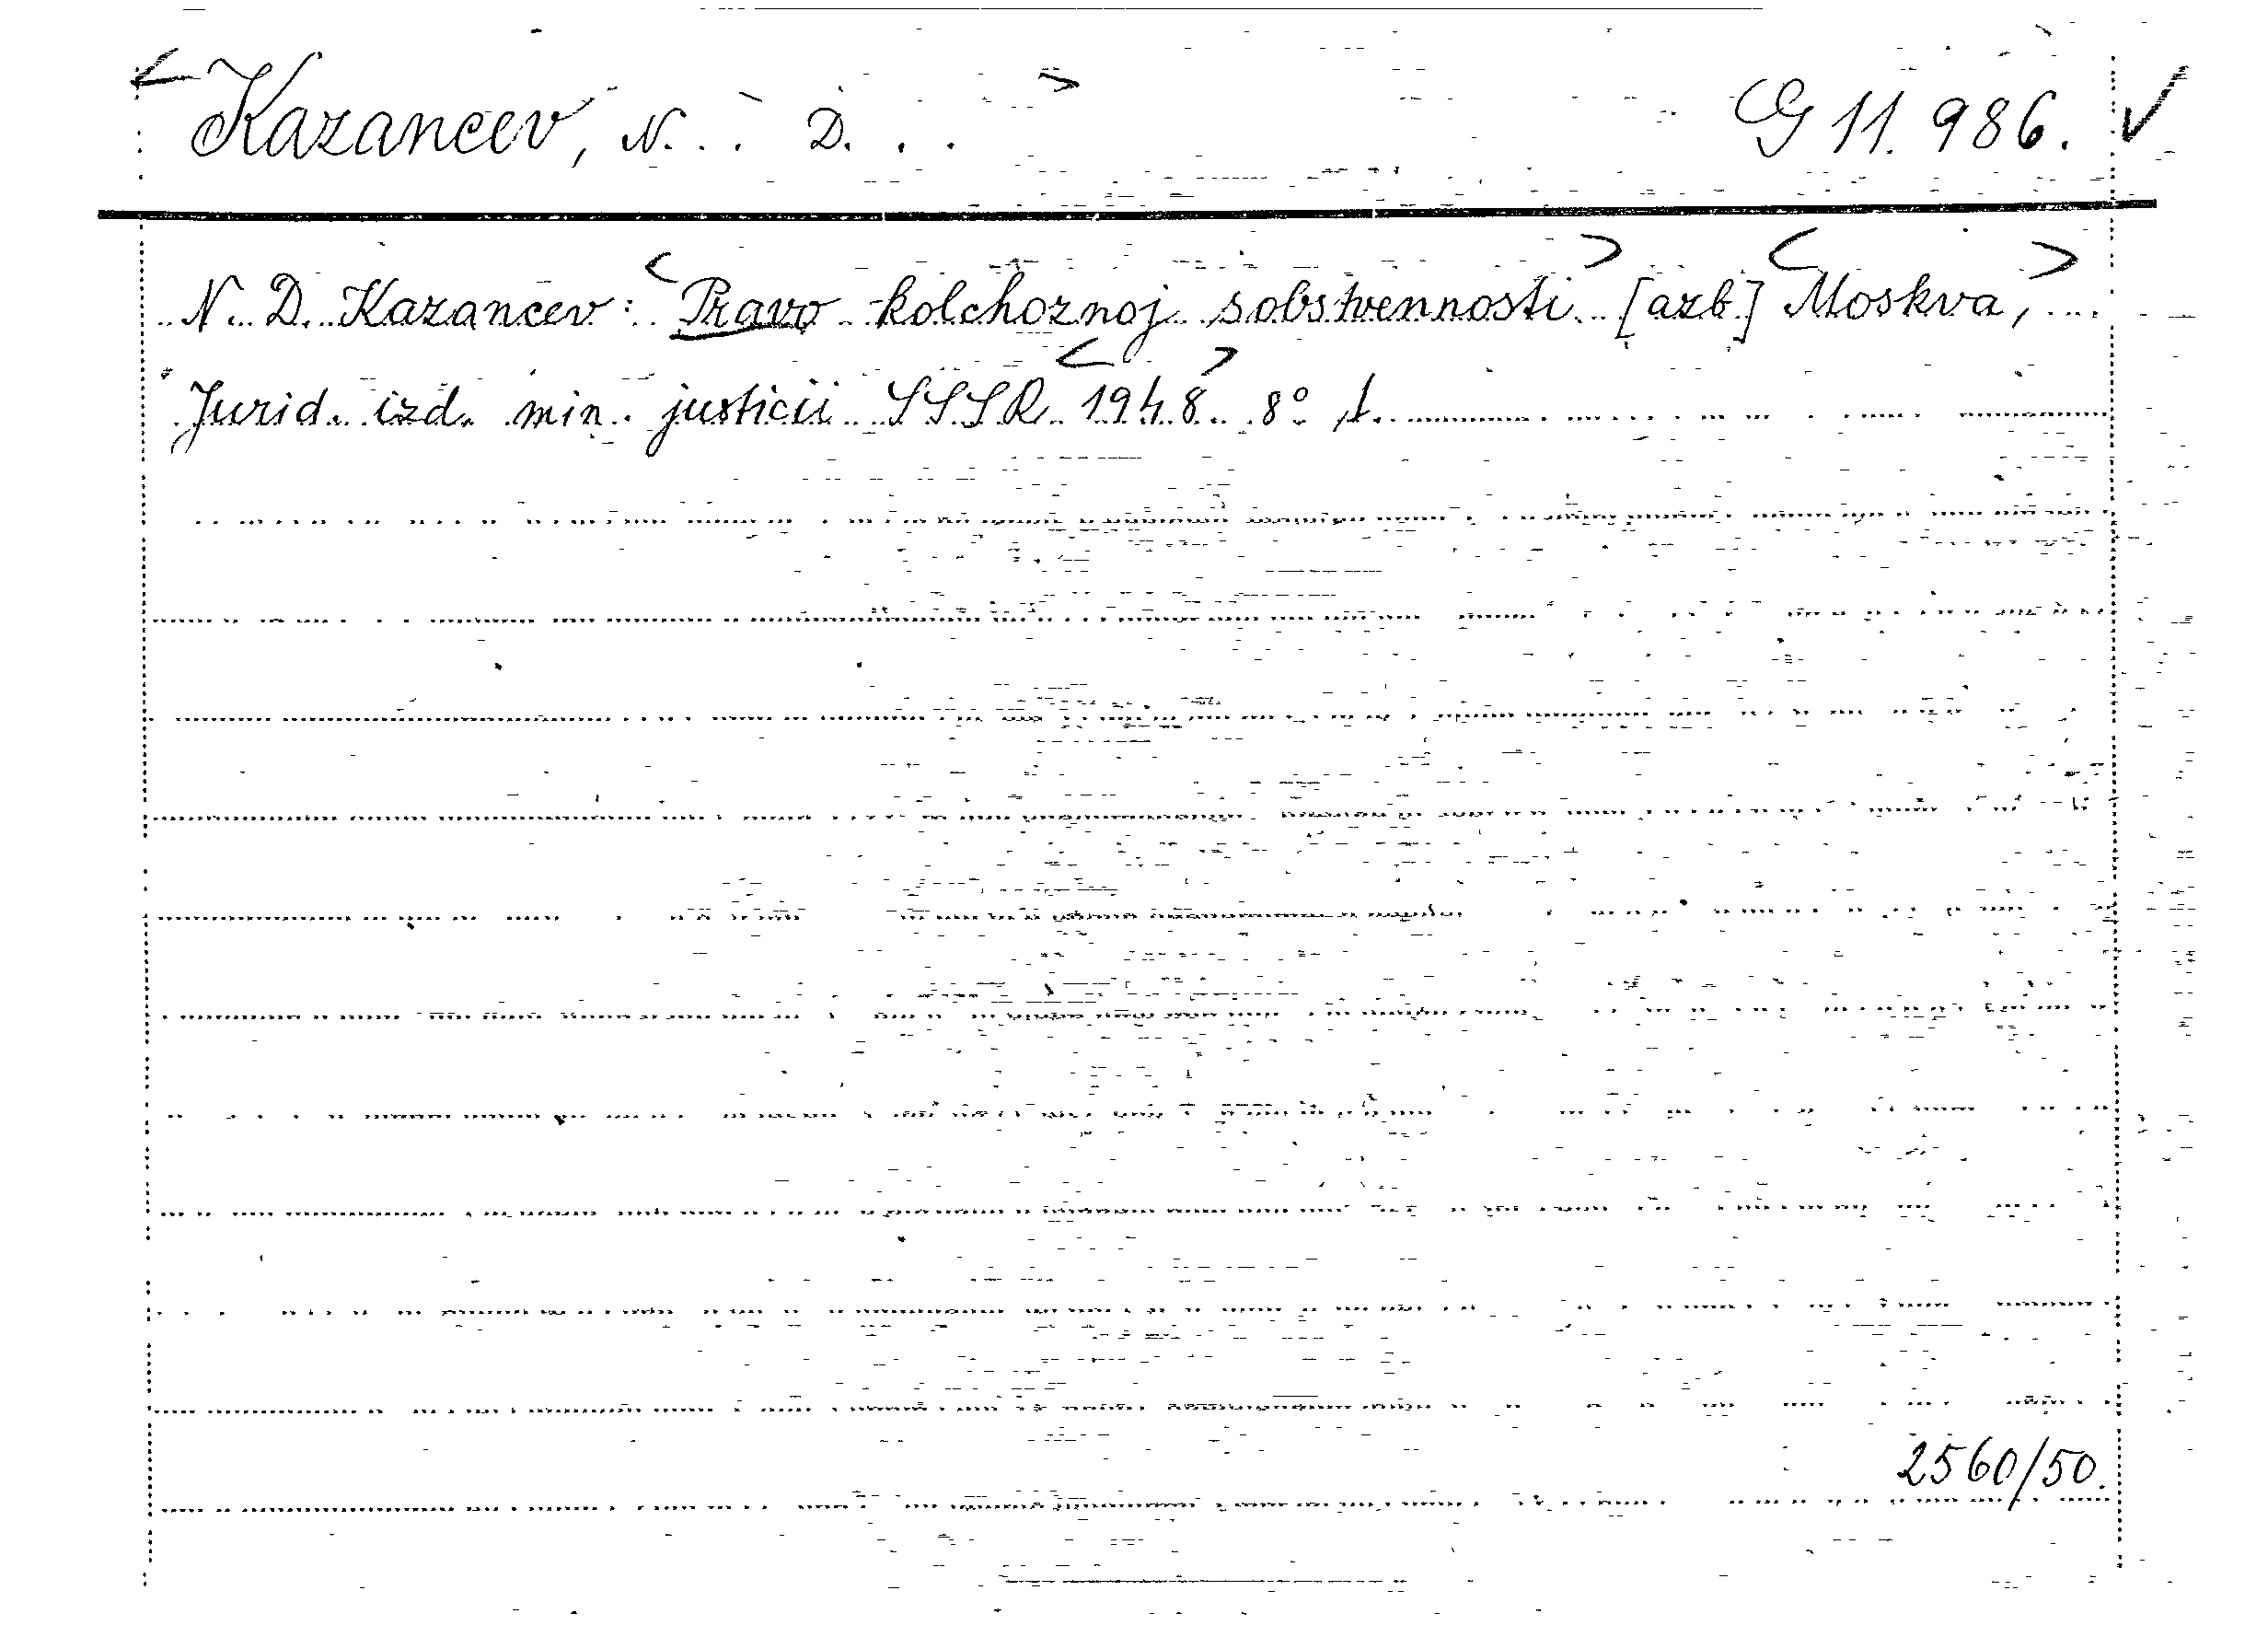 <Kazancev, N. . . D. . .> G 11.986. ✓
N. D. Kazancev: <Pravo kolchoznoj sobstvennosti> [azb.] <Moskva,>
Jurid. izd. min. justicii SSSR <1948> 8°
2560/50.